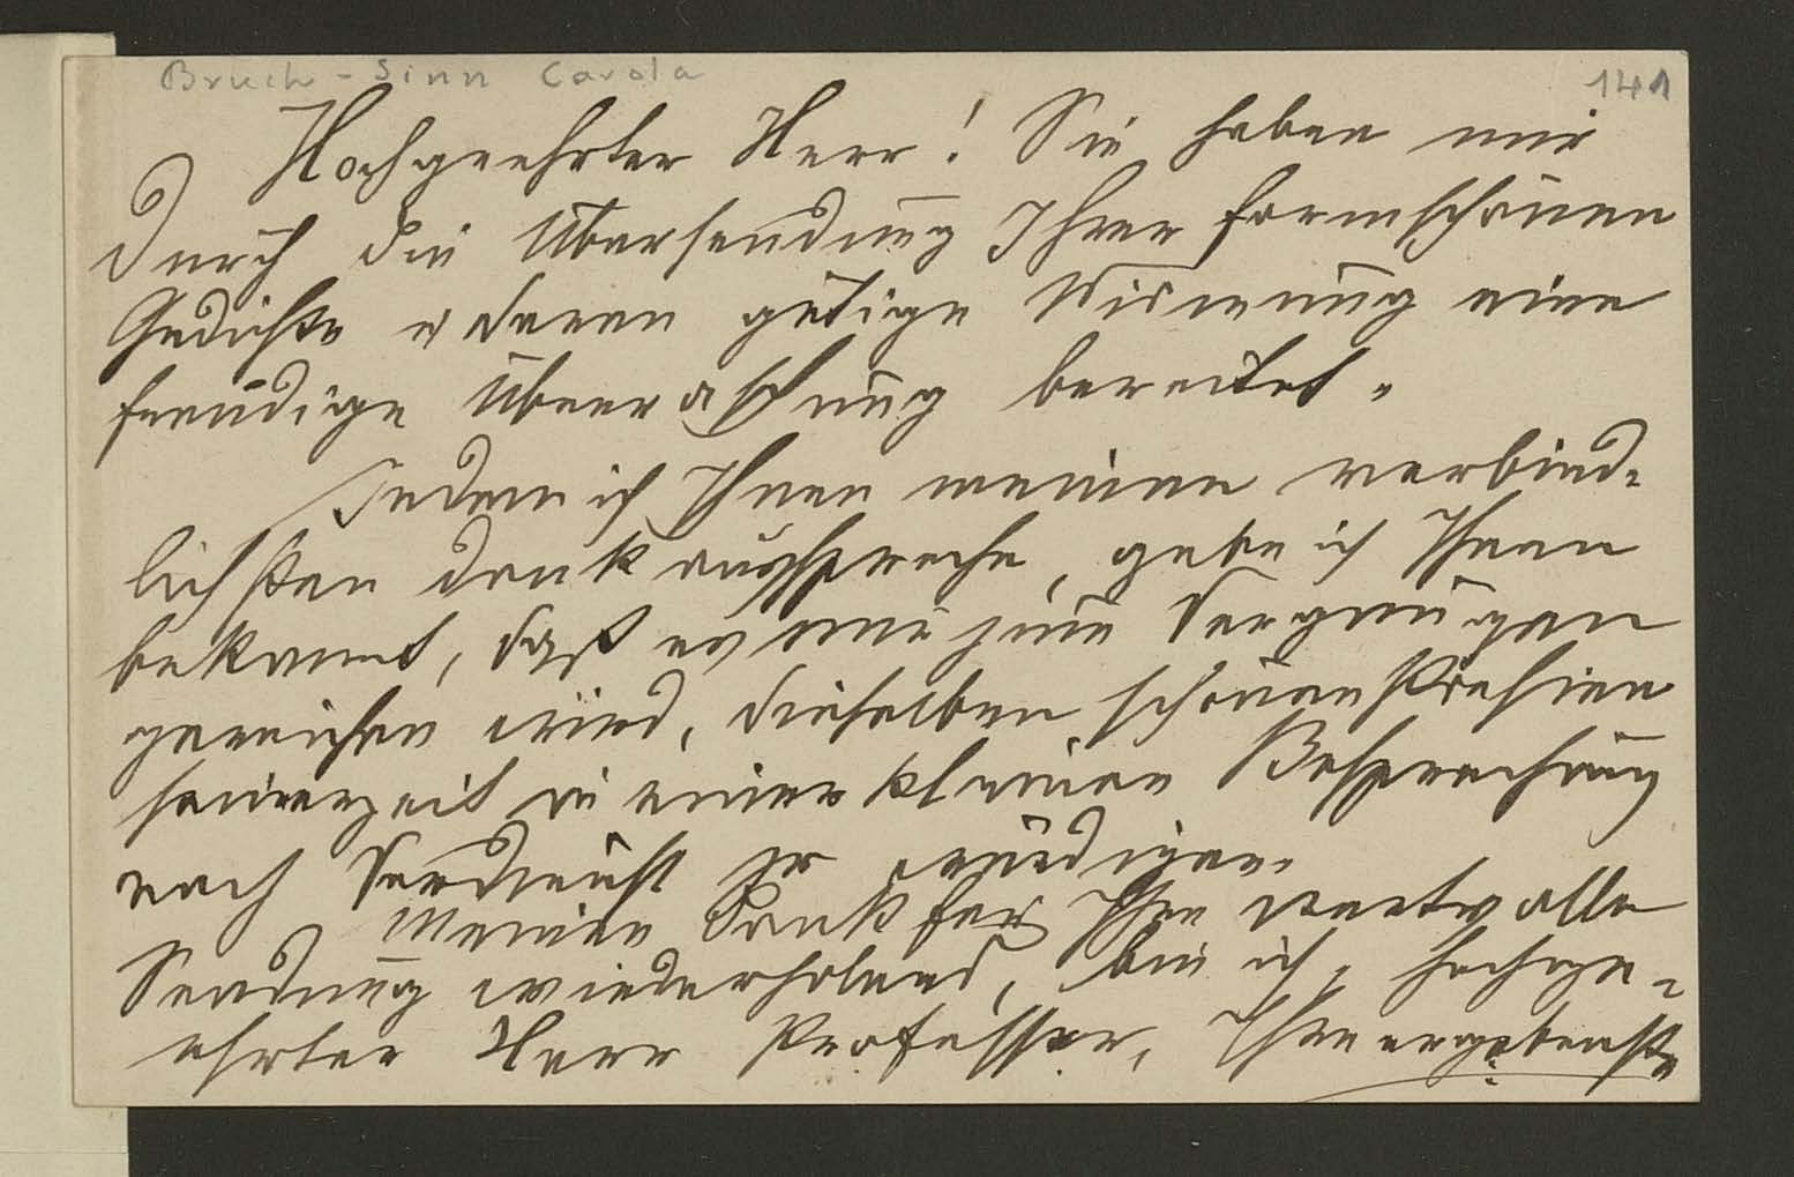 Bruch-Sinn Carola
141
Hochgeehrter Herr! Sie haben mir
durch die Übersendung Ihrer formschönen
Gedichte u deren gütige Widmung eine
freudige Überraschung bereitet.
Indem ich Ihnen meinen verbind-
lichsten Dank ausspreche, gebe ich Ihnen
bekannt, daß es mir zum Vergnügen
gereichen wird, dieselben schönen Poesien
seinerzeit in einer kleinen Besprechung
nach Verdienst zu würdigen.
Meinen Dank für Ihre wertvolle
Sendung wiederholend, bin ich, hochge-
ehrter Herr Professor, Ihre ergebenste